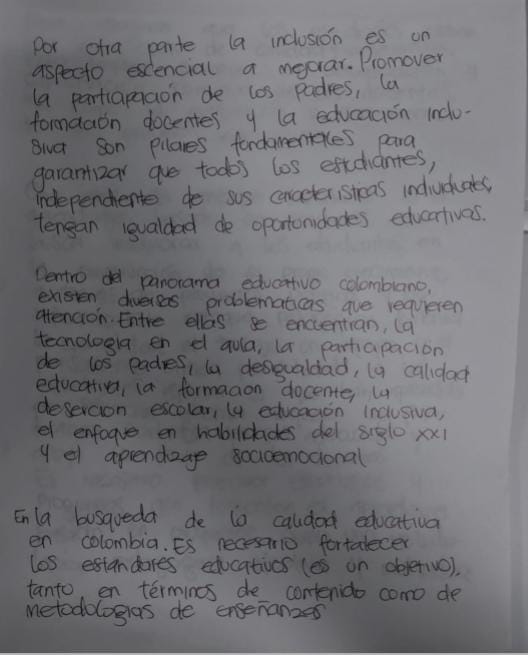 Por otra parte la inclusión es un
aspecto escencial a mejorar. Promover
la participación de los Padres, la
formación docentes y la educación inclu-
siva son Pilares fundamentales para
garantizar que todos los estudiantes,
independiente de sus caracteristicas individuales,
tengan igualdad de oportunidades educativas.
Dentro del panorama educativo colombiano,
existen diversas problematicas que requieren
atención. Entre ellas se encuentran, la
tecnología en el aula, la participación
de los padres, la desigualdad, la calidad
educativa, la formacion docente, la
desercion escolar, la educación inclusiva,
el enfoque en habilidades del siglo XXI
y el aprendizaje socioemocional
En la busqueda de la calidad educativa
en colombia. Es necesario fortalecer
los estandares educativos (es un objetivo),
tanto en términos de contenido como de
metodologias de enseñanzas